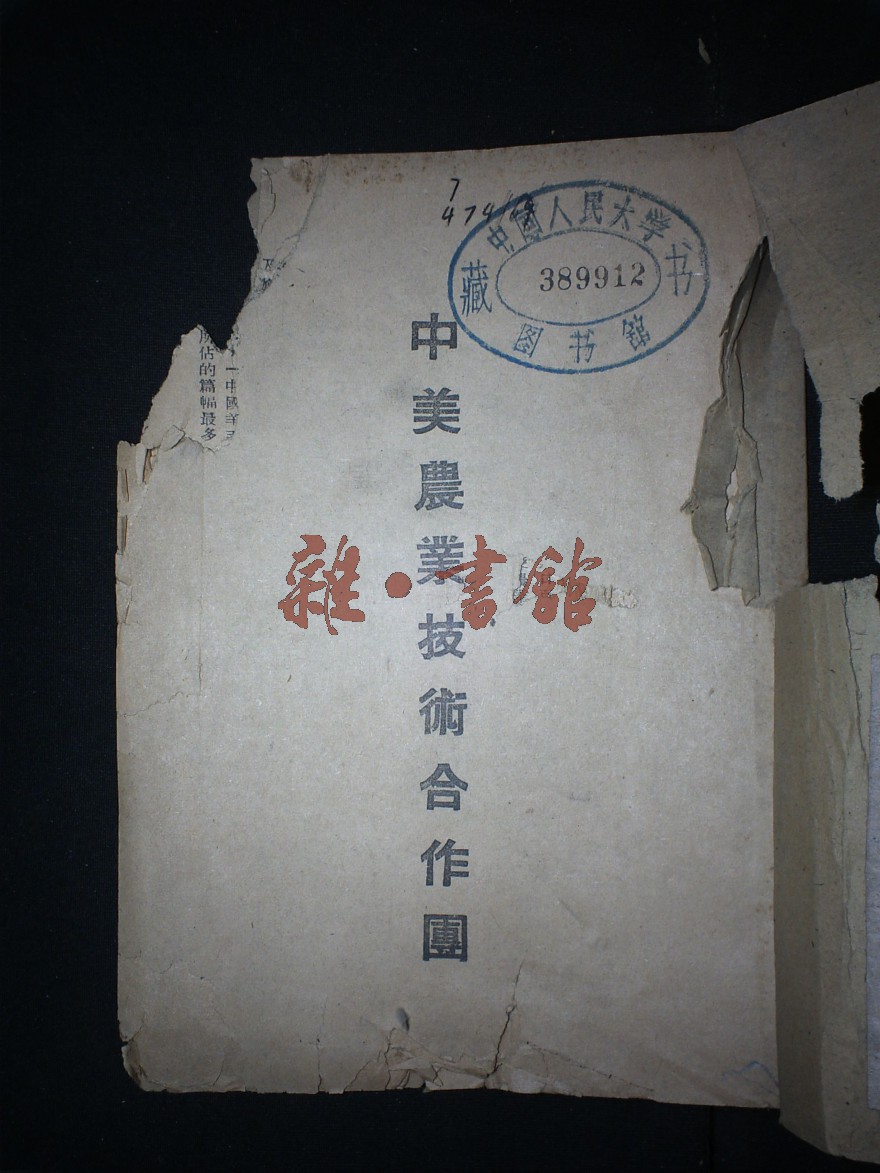 7
474
中國人民大学
藏 389912 书
图书馆
中美農業技術合作團
雜·書館
一中國
所佔的篇幅最多